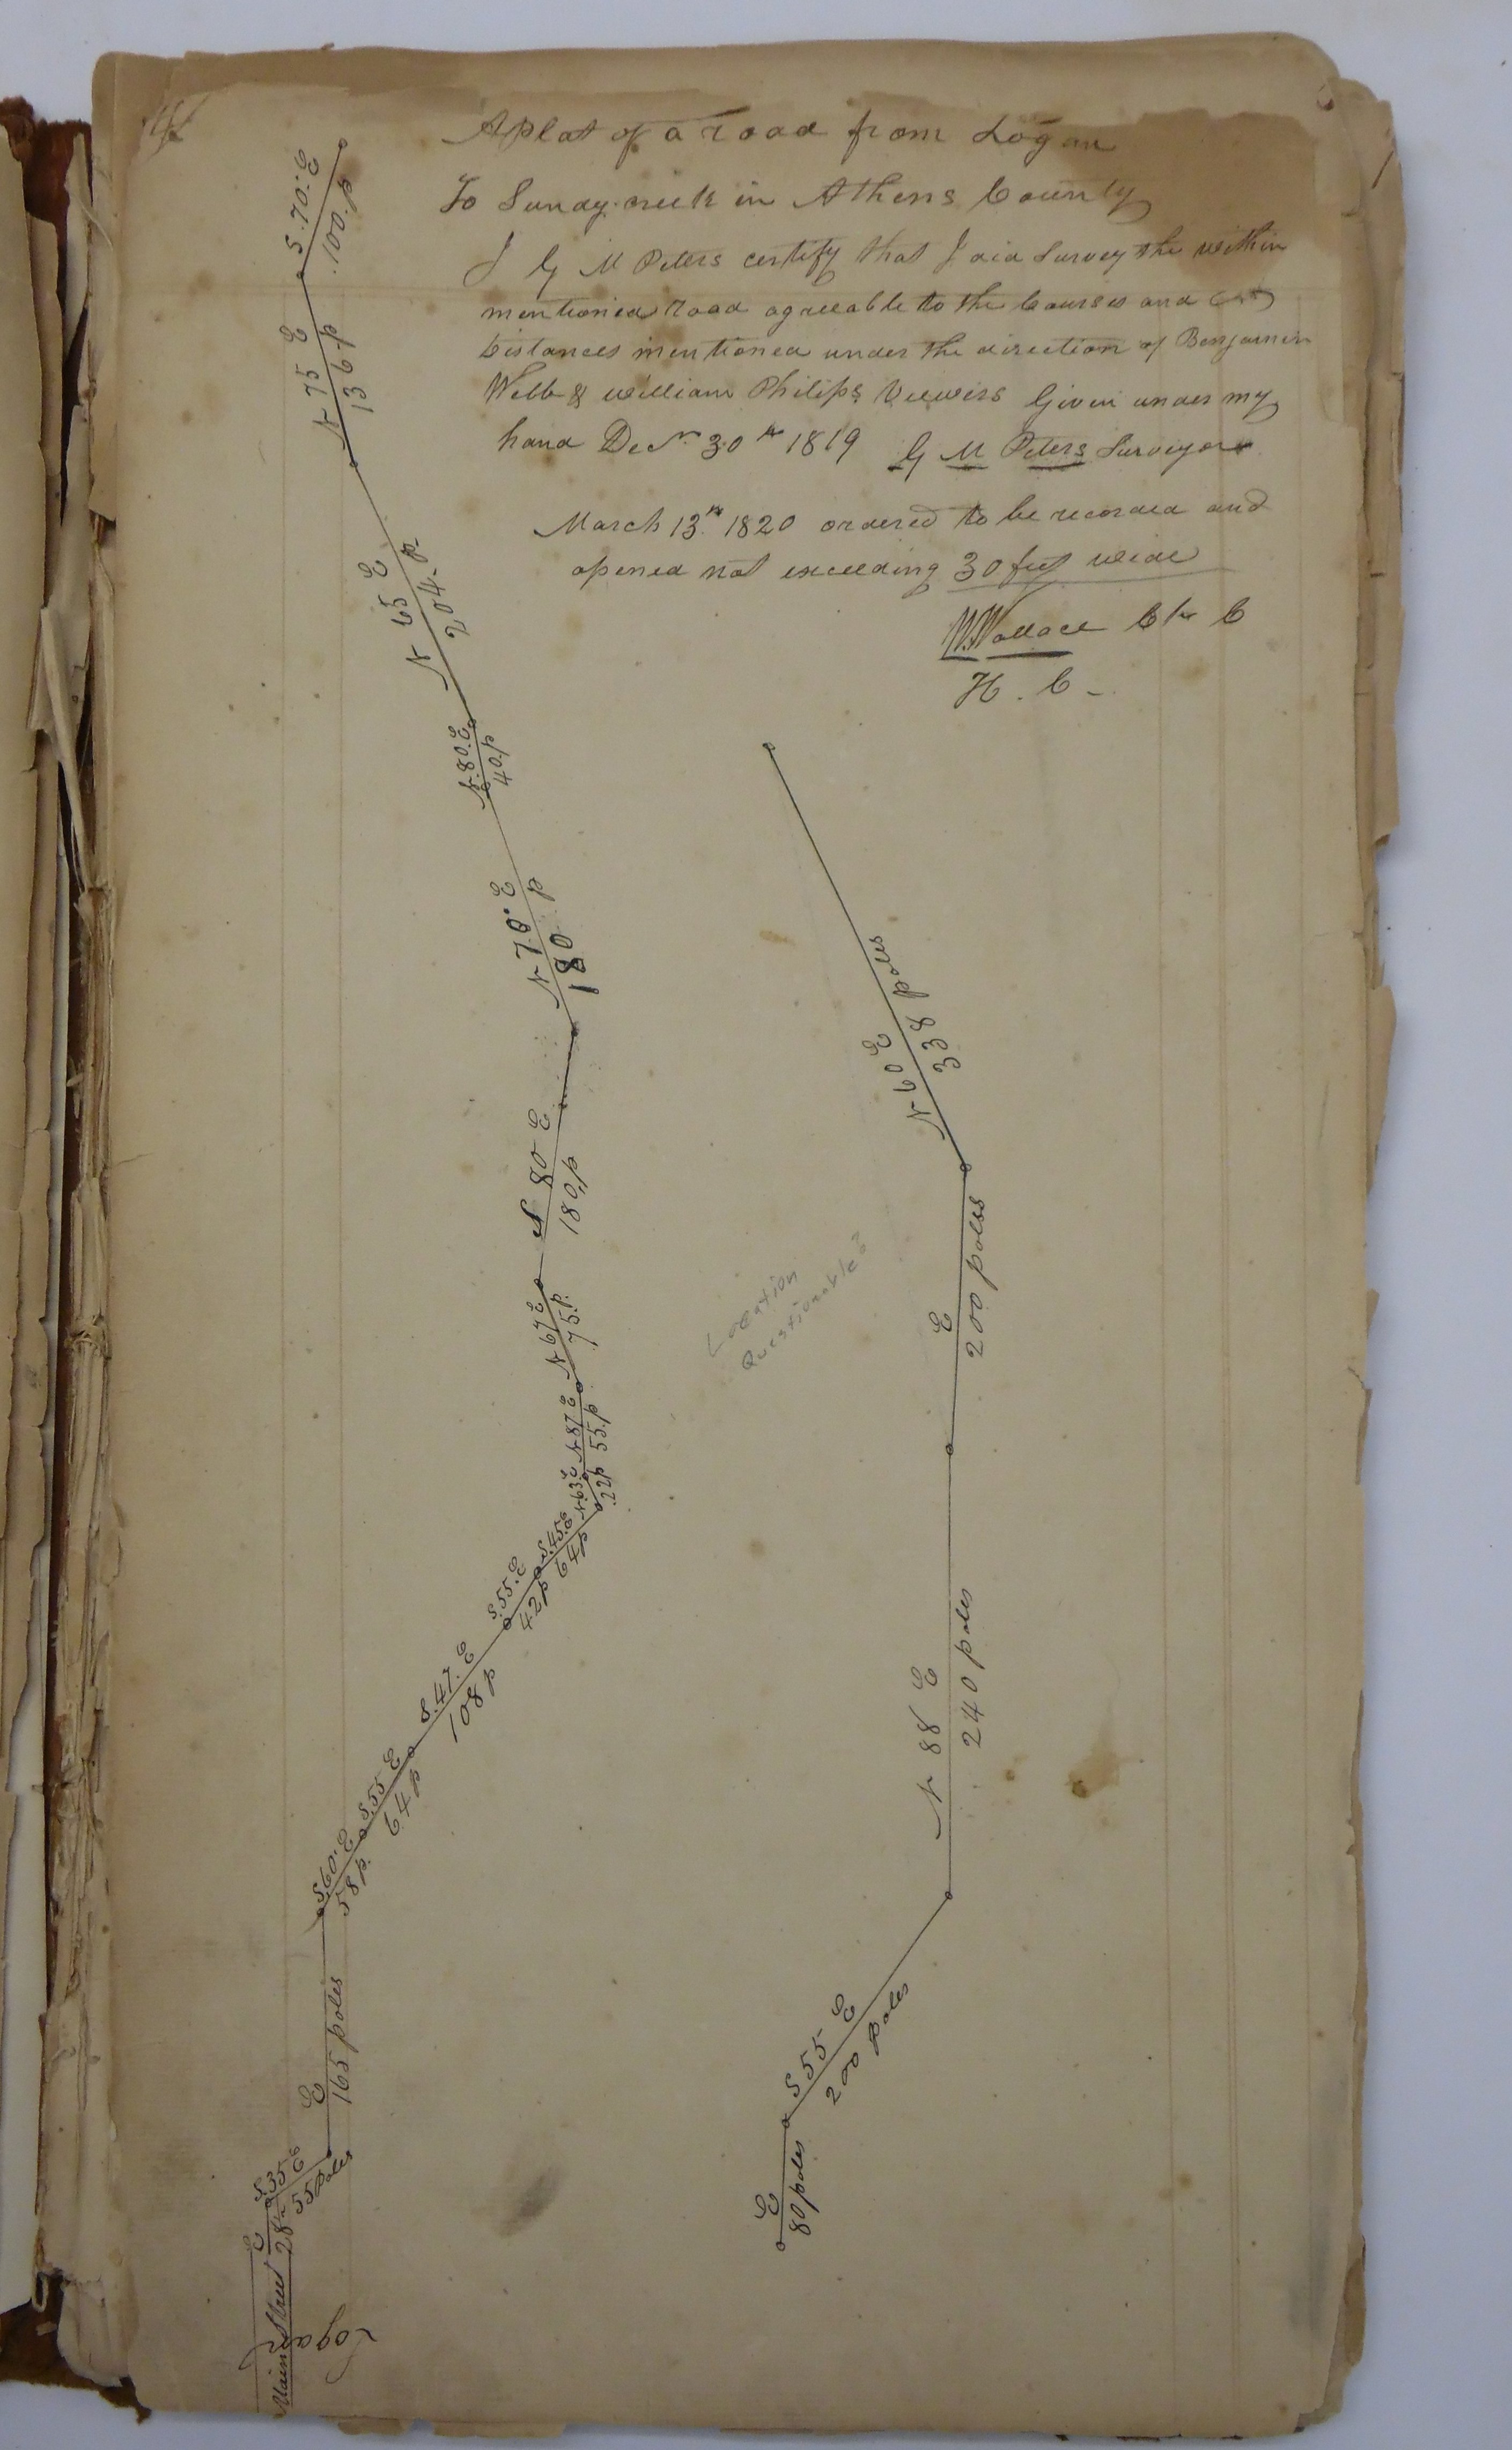 A Plat of a road from Logan
To Sunday creek in Athens County
I G M Peters certify that I did Survey the within
mentioned road agreeable to the Courses and
Distances mentioned under the direction of Benjamin
Webb & william Philips Viewers Given under my
hand Decr 30th 1819 G M Peters Surveyor
March 13th 1820 ordered to be recorded and
opened not exceeding 30 feet wide
W. Wallace Clk C
H. C -
S. 70. E
100. p
N 75 E
136 p
N 65 E
204 p.
N. 80. E
40. p
N 70. E
180 p
S 80 E
180, p
N 67 E
75. p.
N 87 E
55. p
N. 63. E
22 p
S. 45. E
64 p
S. 55. E
42 p
S. 47. E
108 p
S. 55 E
64 p
S. 60. E
58 p.
E
165 poles
S. 35 E
55 Poles
E
28
Main Street
Logan
N 60 E
338 poles
E
200 poles
N 88 E
240 poles
S 55 E
200 poles
E
80 poles
Location
Questionable?